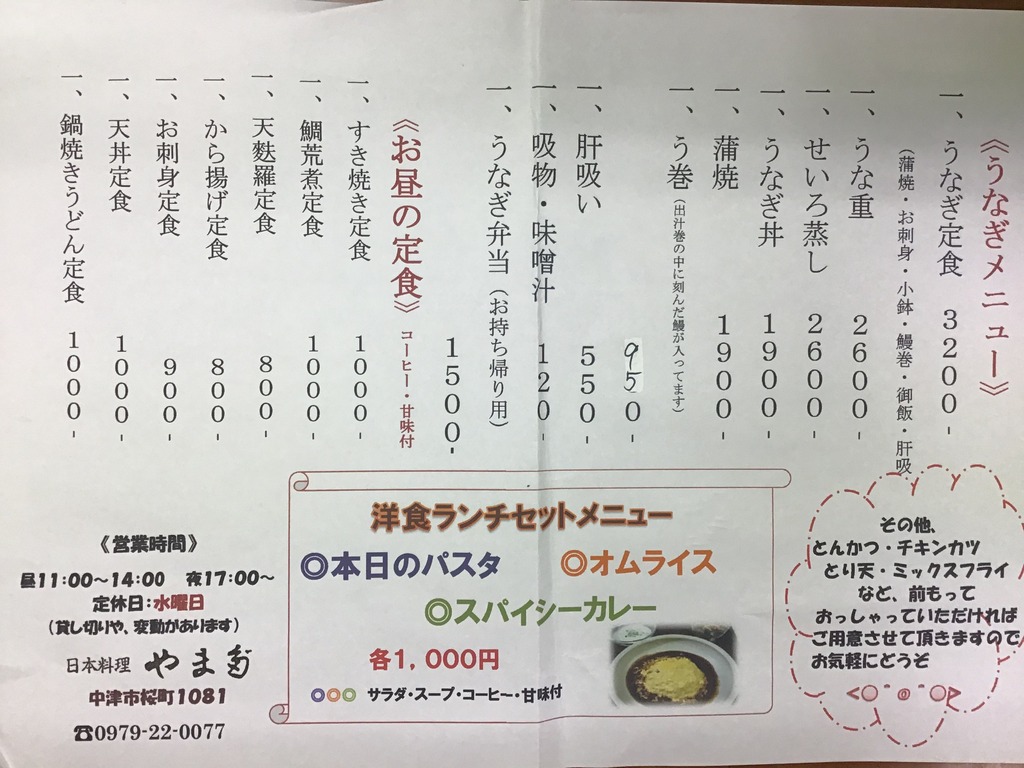 《うなぎメニュー》
一、うなぎ定食 3200-
（蒲焼・お刺身・小鉢・鰻巻・御飯・肝吸
一、うな重 2600-
一、せいろ蒸し 2600-
一、うなぎ丼 1900-
一、蒲焼 1900-
一、う巻（出汁巻の中に刻んだ鰻が入ってます）
950-
一、肝吸い 550-
一、吸物・味噌汁 120-
一、うなぎ弁当（お持ち帰り用）
1500-
《お昼の定食》コーヒー・甘味付
一、すき焼き定食 1000-
一、鯛荒煮定食 1000-
一、天麩羅定食 800-
一、から揚げ定食 800-
一、お刺身定食 900-
一、天丼定食 1000-
一、鍋焼きうどん定食 1000-
その他、
とんかつ・チキンカツ
とり天・ミックスフライ
など、前もって
おっしゃっていただければ
ご用意させて頂きますので
お気軽にどうぞ
洋食ランチセットメニュー
◎本日のパスタ ◎オムライス
◎スパイシーカレー
各1,000円
○○○ サラダ・スープ・コーヒー・甘味付
《営業時間》
昼11:00～14:00 夜17:00～
定休日:水曜日
（貸し切りや、変動があります）
日本料理 やま
中津市桜町1081
☎0979-22-0077